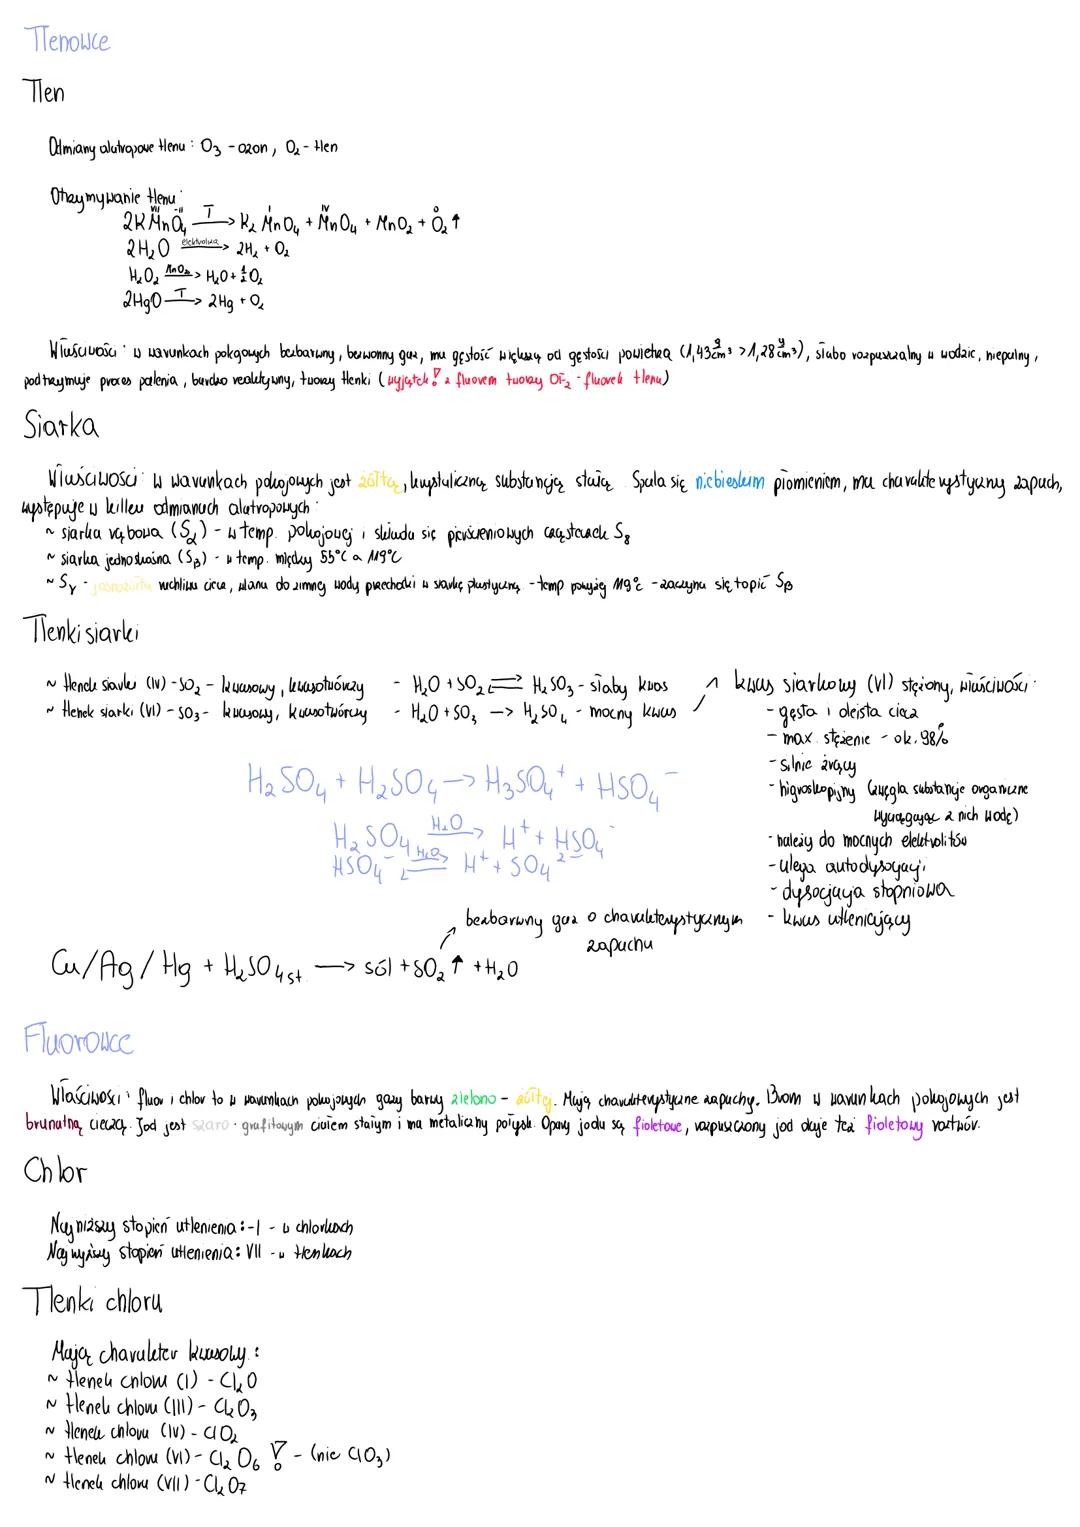 Tlenowce
Tlen
Odmiany alotropowe tlenu: O₃ - ozon, O₂ - tlen
Otrzymywanie tlenu:
2KMnO₄ T→ K₂MnO₄ + MnO₄ + MnO₂ + O₂↑
VII -II I IV 0
2H₂O elektroliza→ 2H₂ + O₂
H₂O₂ MnO₂→ H₂O + ½O₂
2HgO T→ 2Hg + O₂
Właściwości: w warunkach pokojowych bezbarwny, bezwonny gaz, ma gęstość większą od gęstości powietrza (1,43 g/cm³ > 1,28 g/cm³), słabo rozpuszczalny w wodzie, niepalny,
podtrzymuje proces palenia, bardzo reaktywny, tworzy tlenki (wyjątek! z fluorem tworzy OF₂ - fluorek tlenu)
Siarka
Właściwości: w warunkach pokojowych jest żółtą, krystaliczną substancją stałą. Spala się niebieskim płomieniem, ma charakterystyczny zapach,
występuje w kilku odmianach alotropowych:
~ siarka rąbowa (Sα) - w temp. pokojowej i składa się pierścieniowych cząsteczek S₈
~ siarka jednoskośna (Sβ) - w temp. między 55°C a 119°C
~ Sγ - jasnożółta ruchliwa ciecz, wlana do zimnej wody przechodzi w siarkę plastyczną - temp powyżej 119°C - zaczyna się topić Sβ
Tlenki siarki
~ tlenek siarki (IV) - SO₂ - kwasowy, kwasotwórczy - H₂O + SO₂ ⇌ H₂SO₃ - słaby kwas
~ tlenek siarki (VI) - SO₃ - kwasowy, kwasotwórczy - H₂O + SO₃ → H₂SO₄ - mocny kwas
kwas siarkowy (VI) stężony, właściwości:
- gęsta i oleista ciecz
- max. stężenie - ok. 98%
- silnie żrący
- higroskopijny (zwęgla substancje organiczne
wyciągając z nich wodę)
- należy do mocnych elektrolitów
- ulega autodysocjacji
- dysocjacja stopniowa
- kwas utleniający
H₂SO₄ + H₂SO₄ → H₃SO₄⁺ + HSO₄⁻
H₂SO₄ H₂O→ H⁺ + HSO₄⁻
HSO₄⁻ H₂O⇌ H⁺ + SO₄²⁻
bezbarwny gaz o charakterystycznym
zapachu
Cu/Ag/Hg + H₂SO₄ st. → sól + SO₂↑ + H₂O
Fluorowce
Właściwości: fluor i chlor to w warunkach pokojowych gazy barwy zielono - żółtej. Mają charakterystyczne zapachy. Brom w warunkach pokojowych jest
brunatną cieczą. Jod jest szaro - grafitowym ciałem stałym i ma metaliczny połysk. Opary jodu są fioletowe, rozpuszczony jod daje też fioletowy roztwór.
Chlor
Najniższy stopień utlenienia: -I - w chlorkach
Najwyższy stopień utlenienia: VII - w tlenkach
Tlenki chloru
Mają charakter kwasowy:
~ tlenek chloru (I) - Cl₂O
~ tlenek chloru (III) - Cl₂O₃
~ tlenek chloru (IV) - ClO₂
~ tlenek chloru (VI) - Cl₂O₆ ! - (nie ClO₃)
~ tlenek chloru (VII) - Cl₂O₇